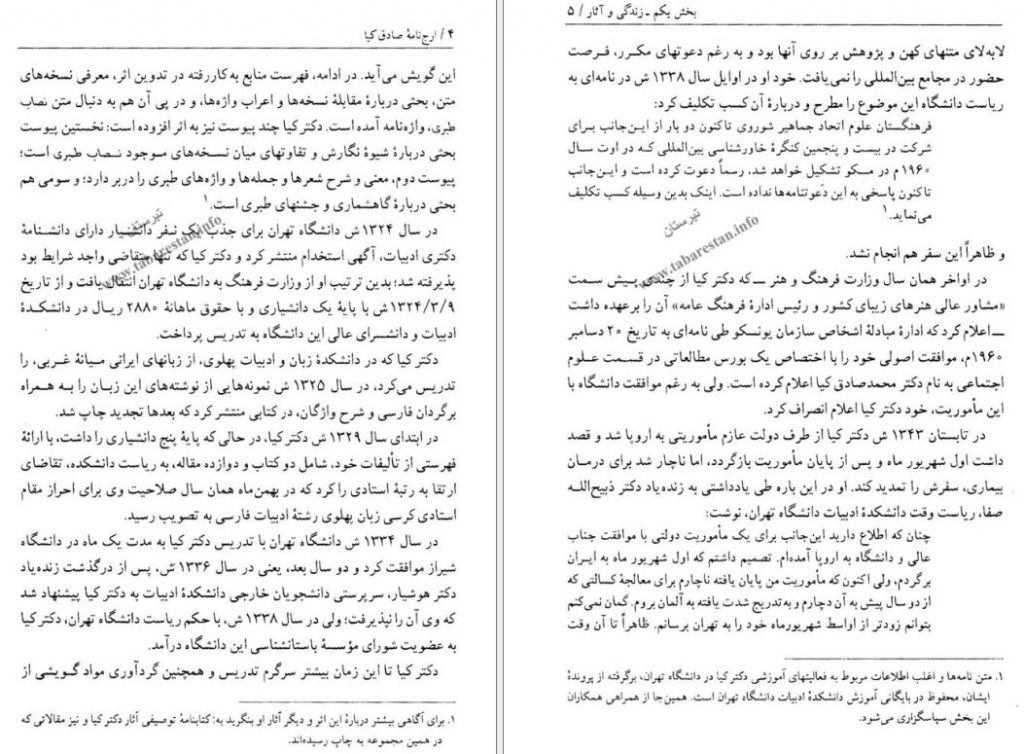 ۴ / ارج‌نامهٔ صادق کیا
این گویش می‌آید. در ادامه، فهرست منابع به‌کاررفته در تدوین اثر، معرفی نسخه‌های
متن، بحثی دربارهٔ مقابلهٔ نسخه‌ها و اعراب واژه‌ها، و در پی آن هم به دنبال متن نصاب
طبری، واژه‌نامه آمده است. دکتر کیا چند پیوست نیز به اثر افزوده است: نخستین پیوست
بحثی دربارهٔ شیوهٔ نگارش و تفاوتهای میان نسخه‌های موجود نصاب طبری است؛
پیوست دوم، معنی و شرح شعرها و جمله‌ها و واژه‌های طبری را دربر دارد؛ و سومی هم
بحثی دربارهٔ گاهشماری و جشنهای طبری است.۱
در سال ۱۳۲۴ش دانشگاه تهران برای جذب یک نفر دانشیار دارای دانشنامهٔ
دکتری ادبیات، آگهی استخدام منتشر کرد و دکتر کیا که تنها متقاضی واجد شرایط بود
پذیرفته شد؛ بدین ترتیب او از وزارت فرهنگ به دانشگاه تهران انتقال یافت و از تاریخ
۱۳۲۴/۳/۹ش با پایهٔ یک دانشیاری و با حقوق ماهانهٔ ۲۸۸۰ ریال در دانشکدهٔ
ادبیات و دانشسرای عالی این دانشگاه به تدریس پرداخت.
دکتر کیا که در دانشکدهٔ زبان و ادبیات پهلوی، از زبانهای ایرانی میانهٔ غربی، را
تدریس می‌کرد، در سال ۱۳۲۵ ش نمونه‌هایی از نوشته‌های این زبان را به همراه
برگردان فارسی و شرح واژگان، در کتابی منتشر کرد که بعدها تجدید چاپ شد.
در ابتدای سال ۱۳۲۹ ش دکتر کیا، در حالی که پایهٔ پنج دانشیاری را داشت، با ارائهٔ
فهرستی از تألیفات خود، شامل دو کتاب و دوازده مقاله، به ریاست دانشکده، تقاضای
ارتقا به رتبهٔ استادی را کرد که در بهمن‌ماه همان سال صلاحیت وی برای احراز مقام
استادی کرسی زبان پهلوی رشتهٔ ادبیات فارسی به تصویب رسید.
در سال ۱۳۳۴ ش دانشگاه تهران با تدریس دکتر کیا به مدت یک ماه در دانشگاه
شیراز موافقت کرد و دو سال بعد، یعنی در سال ۱۳۳۶ ش، پس از درگذشت زنده‌یاد
دکتر هوشیار، سرپرستی دانشجویان خارجی دانشکدهٔ ادبیات به دکتر کیا پیشنهاد شد
که وی آن را نپذیرفت؛ ولی در سال ۱۳۳۸ ش، با حکم ریاست دانشگاه تهران، دکتر کیا
به عضویت شورای مؤسسهٔ باستانشناسی این دانشگاه درآمد.
دکتر کیا تا این زمان بیشتر سرگرم تدریس و همچنین گردآوری مواد گویشی از
۱. برای آگاهی بیشتر دربارهٔ این اثر و دیگر آثار او بنگرید به: کتابنامهٔ توصیفی آثار دکتر کیا و نیز مقالاتی که
در همین مجموعه به چاپ رسیده‌اند.
تبرستان
www.tabarestan.info
بخش یکم ـ زندگی و آثار / ۵
لابه‌لای متنهای کهن و پژوهش بر روی آنها بود و به رغم دعوتهای مکرر، فرصت
حضور در مجامع بین‌المللی را نمی‌یافت. خود او در اوایل سال ۱۳۳۸ ش در نامه‌ای به
ریاست دانشگاه این موضوع را مطرح و دربارهٔ آن کسب تکلیف کرد:
فرهنگستان علوم اتحاد جماهیر شوروی تاکنون دو بار از این‌جانب برای
شرکت در بیست و پنجمین کنگرهٔ خاورشناسی بین‌المللی که در اوت سال
۱۹۶۰ م در مسکو تشکیل خواهد شد، رسماً دعوت کرده است و این‌جانب
تاکنون پاسخی به این دعوتنامه‌ها نداده است. اینک بدین وسیله کسب تکلیف
می‌نماید.۱
و ظاهراً این سفر هم انجام نشد.
در اواخر همان سال وزارت فرهنگ و هنر ــ که دکتر کیا از چندی پیش سمت
«مشاور عالی هنرهای زیبای کشور و رئیس ادارهٔ فرهنگ عامه» آن را برعهده داشت
ــ اعلام کرد که ادارهٔ مبادلهٔ اشخاص سازمان یونسکو طی نامه‌ای به تاریخ ۲۰ دسامبر
۱۹۶۰م، موافقت اصولی خود را با اختصاص یک بورس مطالعاتی در قسمت علوم
اجتماعی به نام دکتر محمدصادق کیا اعلام کرده است. ولی به رغم موافقت دانشگاه با
این مأموریت، خود دکتر کیا اعلام انصراف کرد.
در تابستان ۱۳۴۳ ش دکتر کیا از طرف دولت عازم مأموریتی به اروپا شد و قصد
داشت اول شهریور ماه و پس از پایان مأموریت بازگردد، اما ناچار شد برای درمان
بیماری، سفرش را تمدید کند. او در این باره طی یادداشتی به زنده‌یاد دکتر ذبیح‌الله
صفا، ریاست وقت دانشکدهٔ ادبیات دانشگاه تهران، نوشت:
چنان که اطلاع دارید این‌جانب برای یک مأموریت دولتی با موافقت جناب
عالی و دانشگاه به اروپا آمده‌ام. تصمیم داشتم که اول شهریور ماه به ایران
برگردم، ولی اکنون که مأموریت من پایان یافته ناچارم برای معالجهٔ کسالتی که
از دو سال پیش به آن دچارم و به‌تدریج شدت یافته به آلمان بروم. گمان نمی‌کنم
بتوانم زودتر از اواسط شهریورماه خود را به تهران برسانم. ظاهراً تا آن وقت
۱. متن نامه‌ها و اغلب اطلاعات مربوط به فعالیتهای آموزشی دکتر کیا در دانشگاه تهران، برگرفته از پروندهٔ
ایشان، محفوظ در بایگانی آموزش دانشکدهٔ ادبیات دانشگاه تهران است. همین‌جا از همراهی همکاران
این بخش سپاسگزاری می‌شود.
تبرستان
www.tabarestan.info